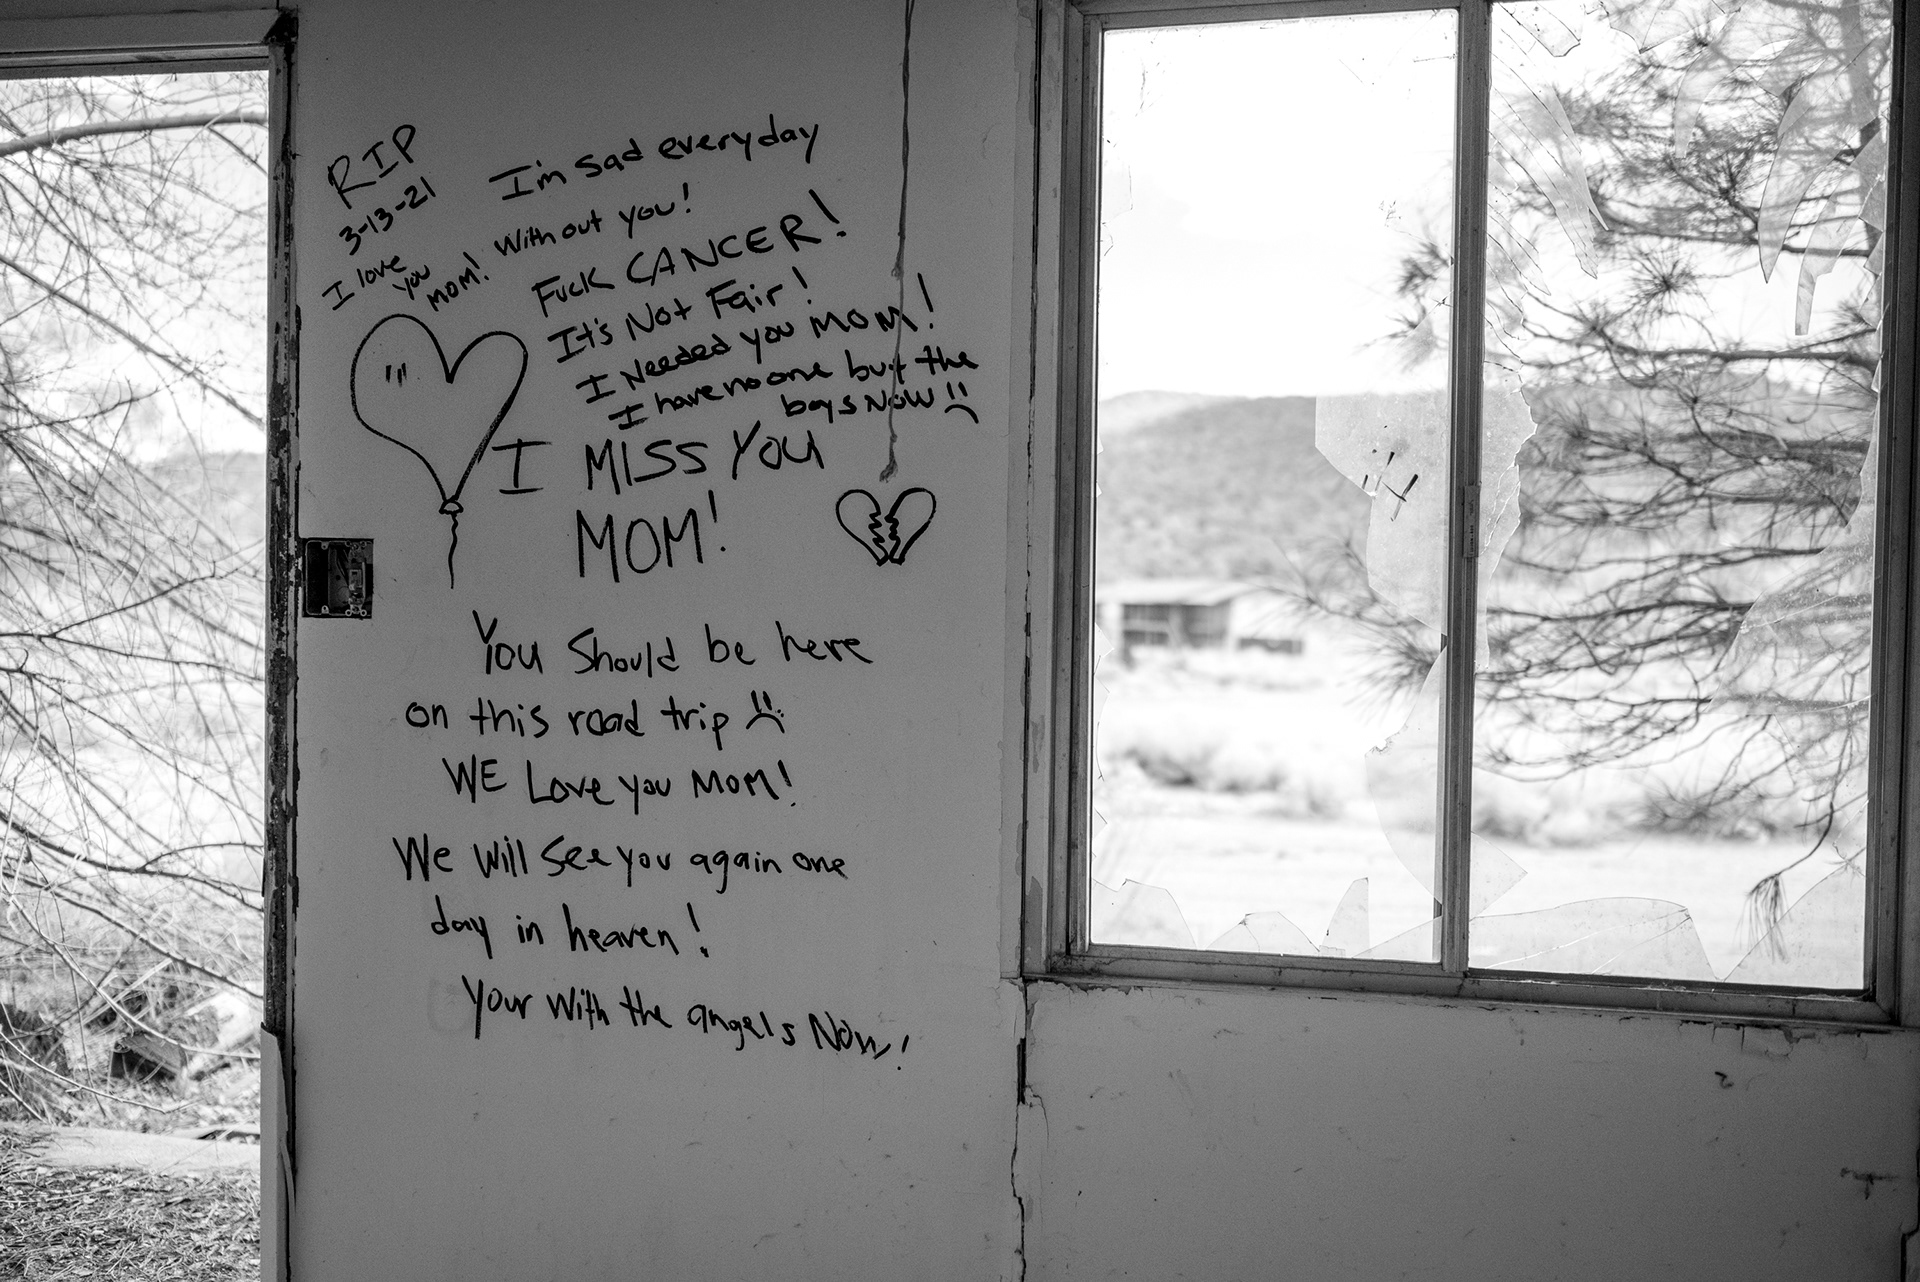 RIP
3-13-21
I love
you
mom!
I'm sad everyday
without you!
FUCK CANCER!
It's Not Fair!
I Needed you MOM!
I have no one but the
boys NOW
I MISS YOU
MOM!
You Should be here
on this road trip
WE Love you MOM!
We will see you again one
day in heaven!
Your with the angels Now!